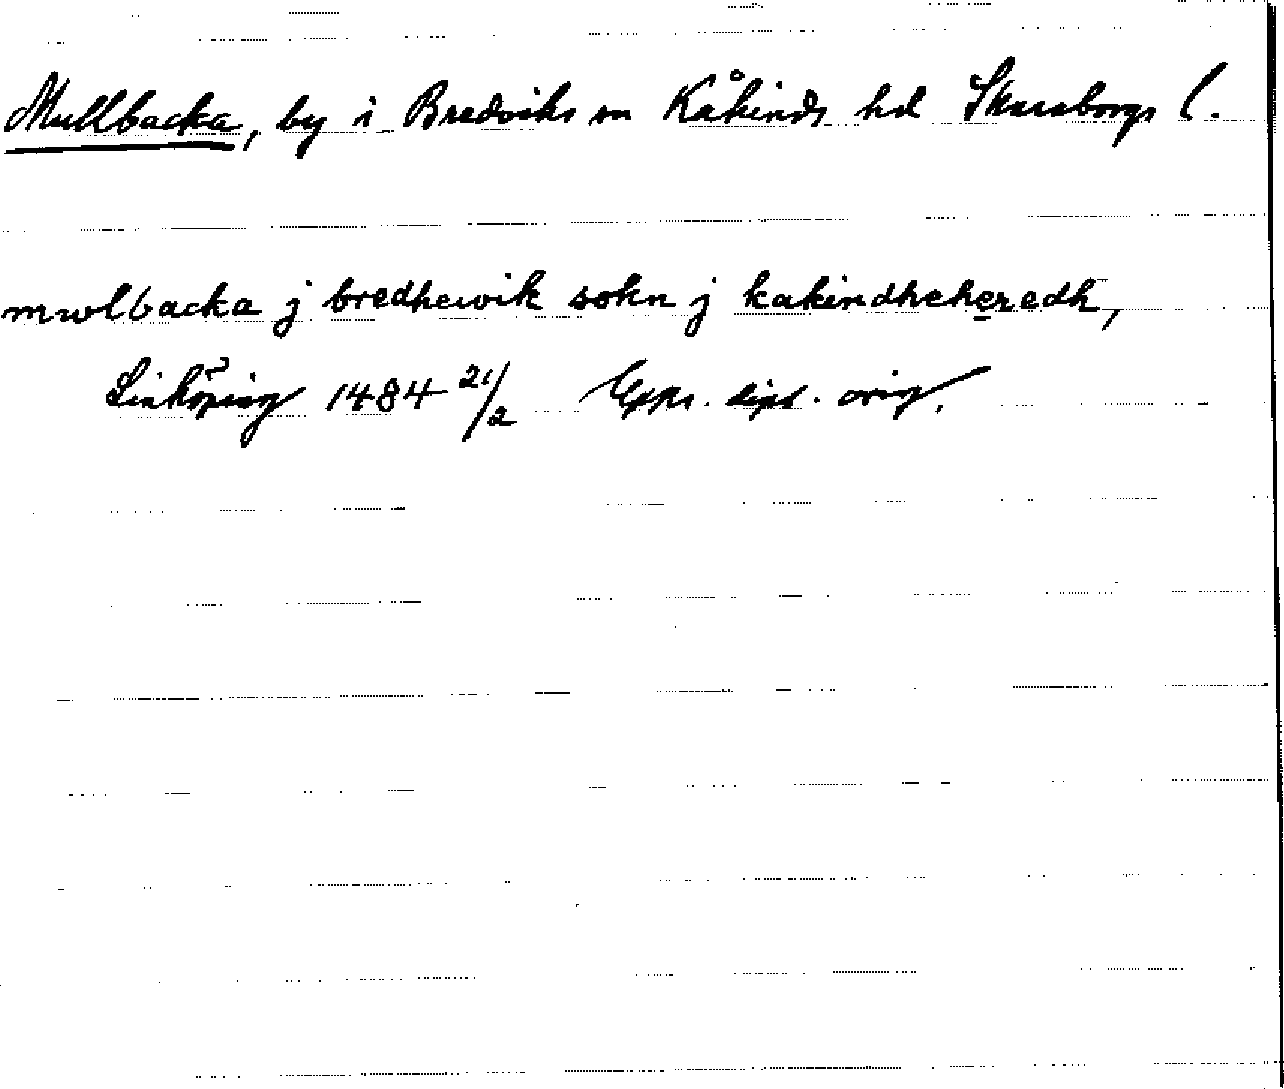 Mullbacka, by i Bredviks sn Kåkinds hd Skaraborgs l.
mwlbacka j bredhewik sokn j kakindheheredh,
Linköping 1484 21/2 dipl. orig.